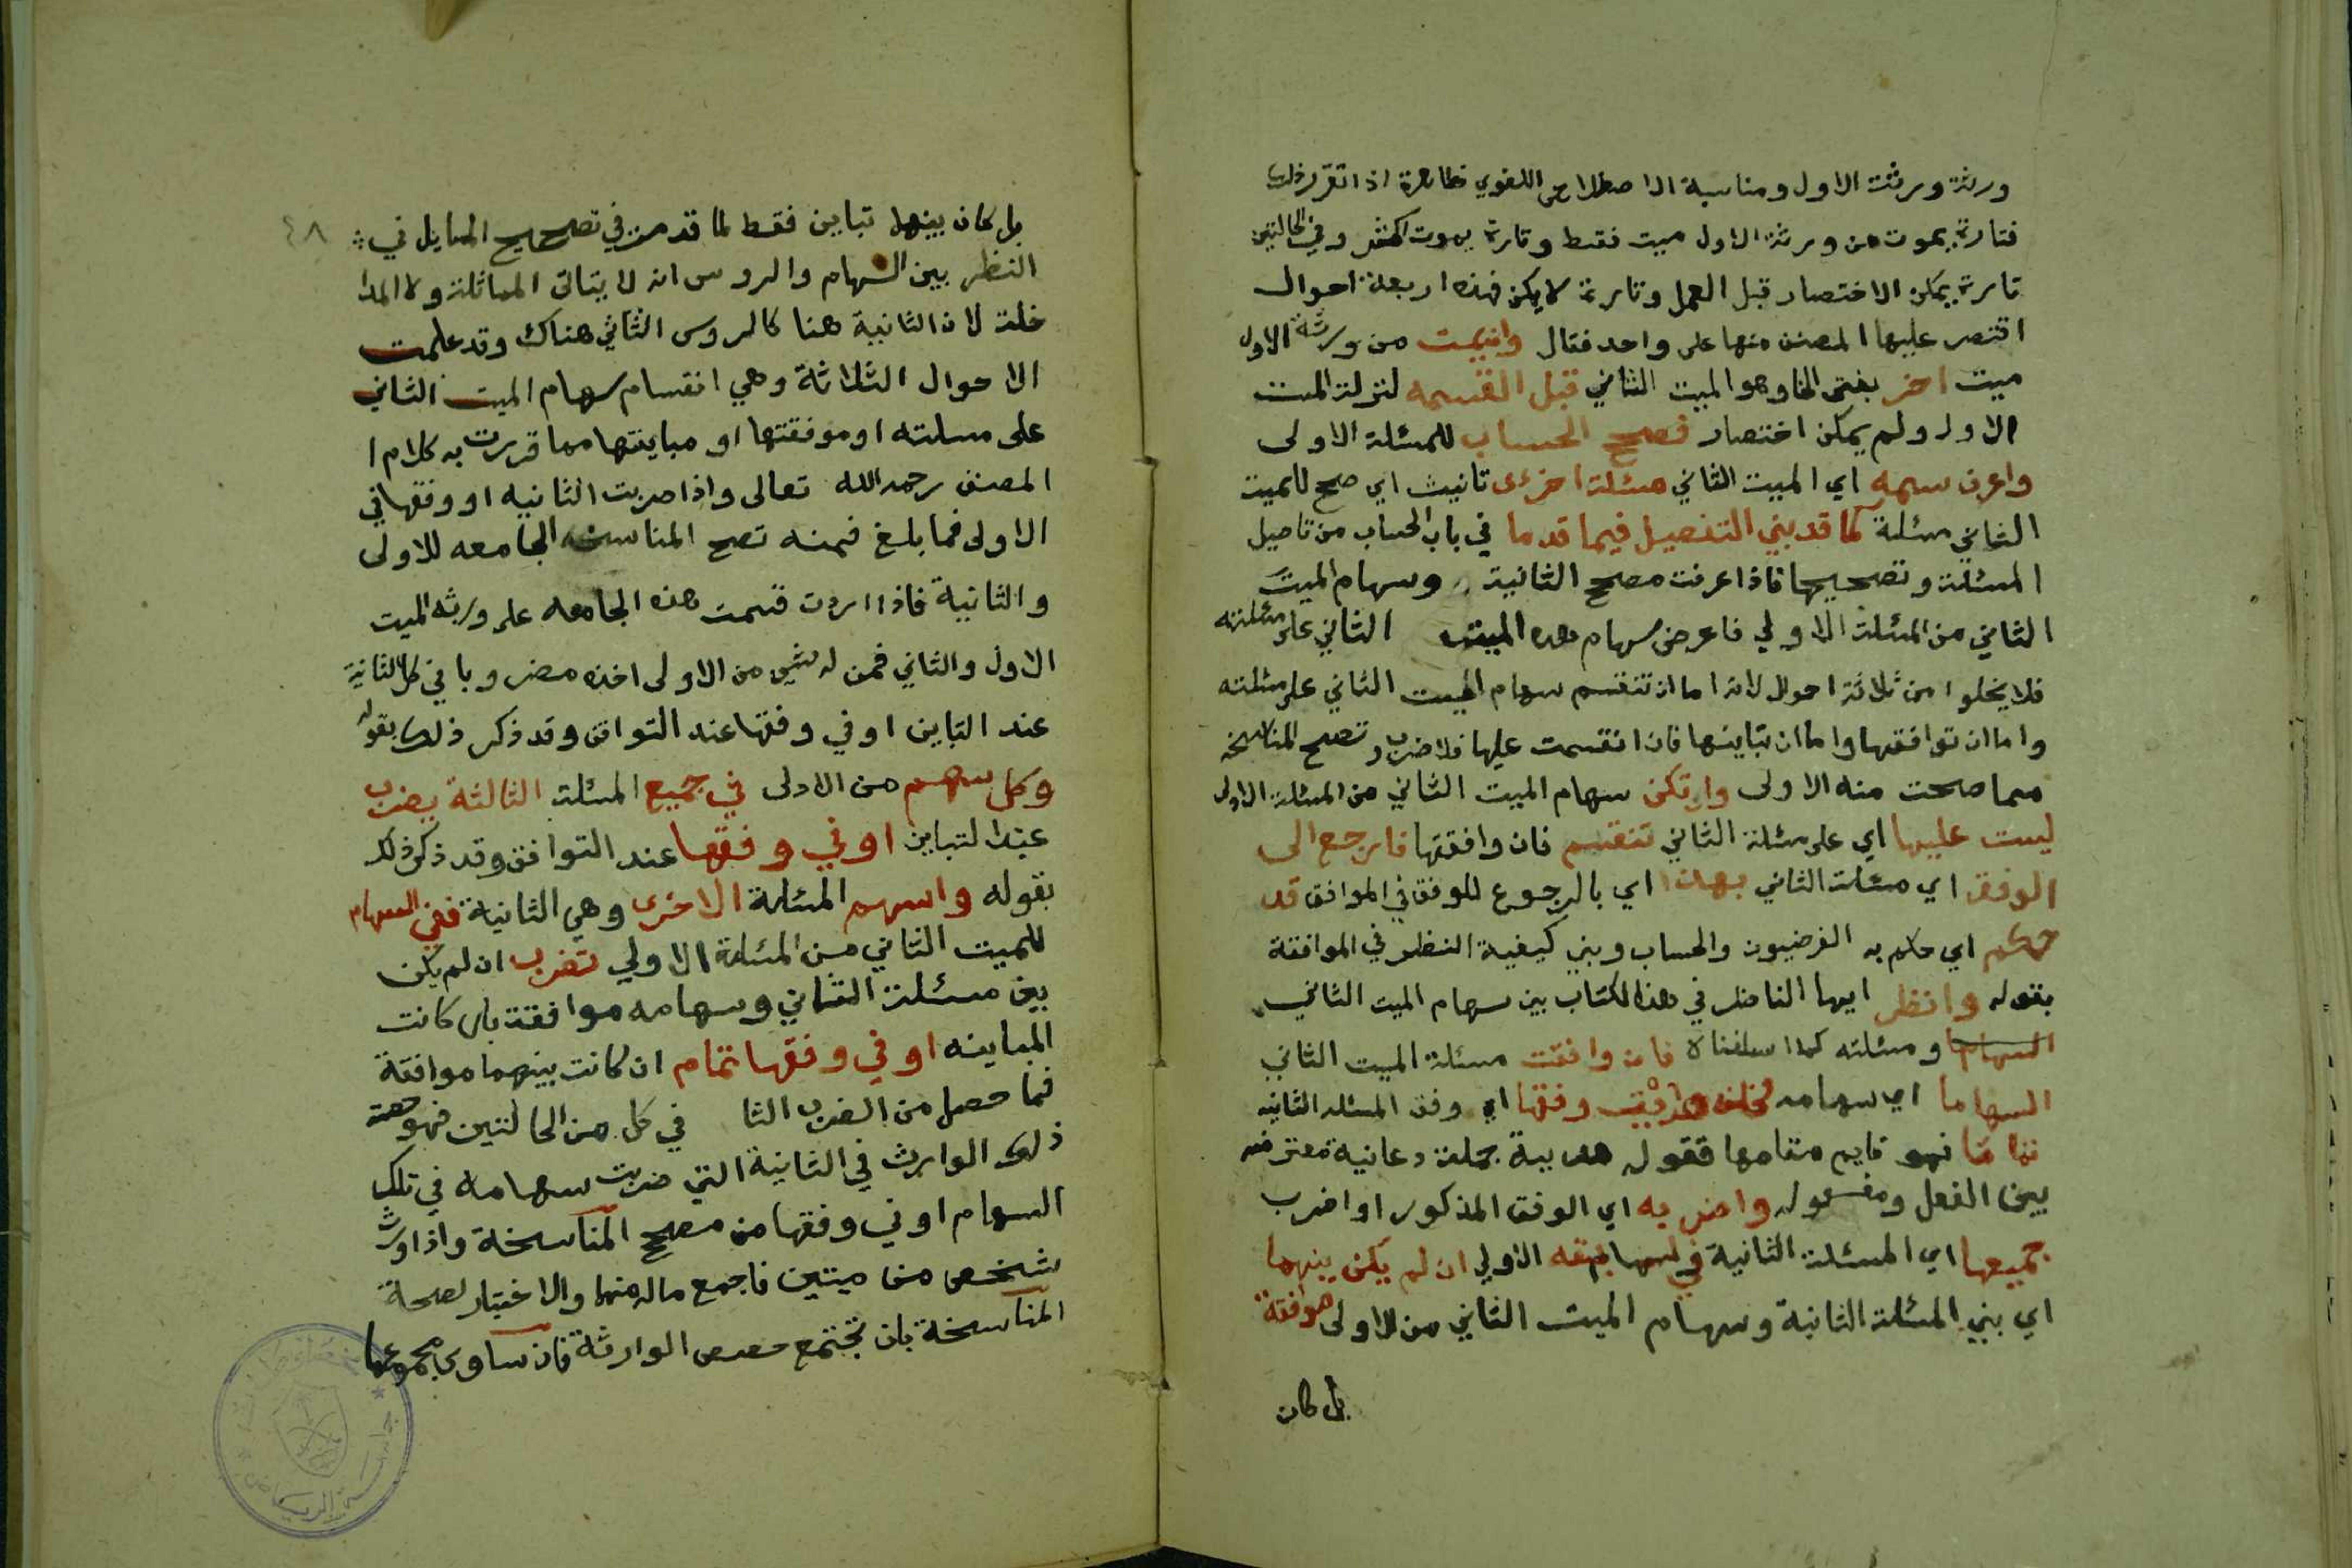 ورثة ورثت الاول ومناسبة الاصطلاحي اللغوي ظاهرة اذا تقرر ذلك
فتارة يموت من ورثة الاول ميت فقط وتارة يموت اكثر وفي الحالتين
تارة يمكن الاختصار قبل العمل وتارة لا يكن فهذه اربعة احوال
اقتصر عليها المصنف منها على واحد فقال وان يمت من ورثة الاول
ميت اخر بفتح الخا وهو الميت الثاني قبل القسمه لتركة الميت
الاول ولم يمكن اختصار فصحح الحساب للمسئلة الاولى
واعرف سهمه اي الميت الثاني مسئلة اخرى تانيث اي صح للميت
الثاني مسئلة كما قد بني التفصيل فيما قدما في باب الحساب من تاصيل
المسئلة وتصحيحها فاذا عرفت مصحح الثانية وسهام الميت
الثاني من المسئلة الاولي فاعرض سهام هذه الميت الثاني على مسئلته
فلا يخلوا من ثلاثة احوال لانه اما ان تنقسم سهام الميت الثاني على مسئلته
واما ان توافقها واما ان تباينها فان انقسمت عليها فلا ضرب وتصح المناسخه
مما صحت منه الاولى وان تكن سهام الميت الثاني من المسئلة الاولى
ليست عليها اي على مسئلة الثاني تنقسم فان وافقتها فارجع الى
الوفق اي مسئلة الثاني بهذا اي بالرجوع للوفق في الموافق قد
حكم اي حكم به الفرضيون والحساب وبني كيفية النظر في الموافقة
بقوله وانظر ايها الناظر في هذا الكتاب بين سهام الميت الثاني
السهاما ومسئلته كما اسلفناه فان وافقت مسئلة الميت الثاني
السهاما اي سهامه فخذ هديت وفقها اي وفق المسئله الثانيه
تماما فهو قايم مقامها فقوله هديت جملة دعائية معترضه
بين الفعل ومفعوله واضربه اي الوفق المذكور او اضرب
جميعها اي المسئلة الثانية في السابقه الاولي ان لم يكن بينهما
اي بني المسئلة الثانية وسهام الميت الثاني من الاولى موافقة
بل كان
٤٨
بل كان بينهما تباين فقط لما قد مر في تصحيح المسايل في
النظر بين السهام والروس انه لا يتاتى المماثلة ولا المدا
خلة لان الثانية هنا كالروس الثاني هناك وقد علمت
الاحوال الثلاثة وهي انقسام سهام الميت الثاني
على مسلته او موفقتها او مباينتها مما قررت به كلام ا
المصنف رحمه الله تعالى واذا ضربت الثانيه او وفقها في
الاولى فما بلغ فمنه تصح المناسخه الجامعه للاولى
والثانية فاذا اردت قسمت هذه الجامعه على ورثه الميت
الاول والثاني فمن له شي من الاولى اخذه مضروبا في كل الثانية
عند التباين او في وفقها عند التوافق وقد ذكر ذلك بقوله
وكل سهم من الاولى في جميع المسئلة الثالثة يضرب
عند التباين او في وفقها عند التوافق وقد ذكر ذلك
بقوله واسهم المسئلة الاخرى وهي الثانية ففي السهام
للميت الثاني من المسئلة الاولي تضرب ان لم يكن
بين مسئلة الثاني وسهامه موافقة بان كانت
المباينه او في وفقها تمام ان كانت بينهما موافقة
فما حصل من الضرب الثا في كل من الحالتين فهو حصة
ذلك الوارث في الثانية التي ضربت سهامه في تلك
السهام او في وفقها من مصحح المناسخة واذا ورث
شخص من ميتين فاجمع ماله منهما والاختبار لصحة
المناسخة بان تجتمع حصص الوارثة فان ساوى مجموعها